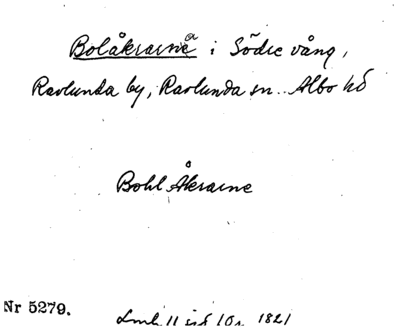 Bolåkrarne i Södre vång,
Ravlunda by, Ravlunda sn. Albo hd
Bohl Åkrarne
Nr 5279.
11 1821